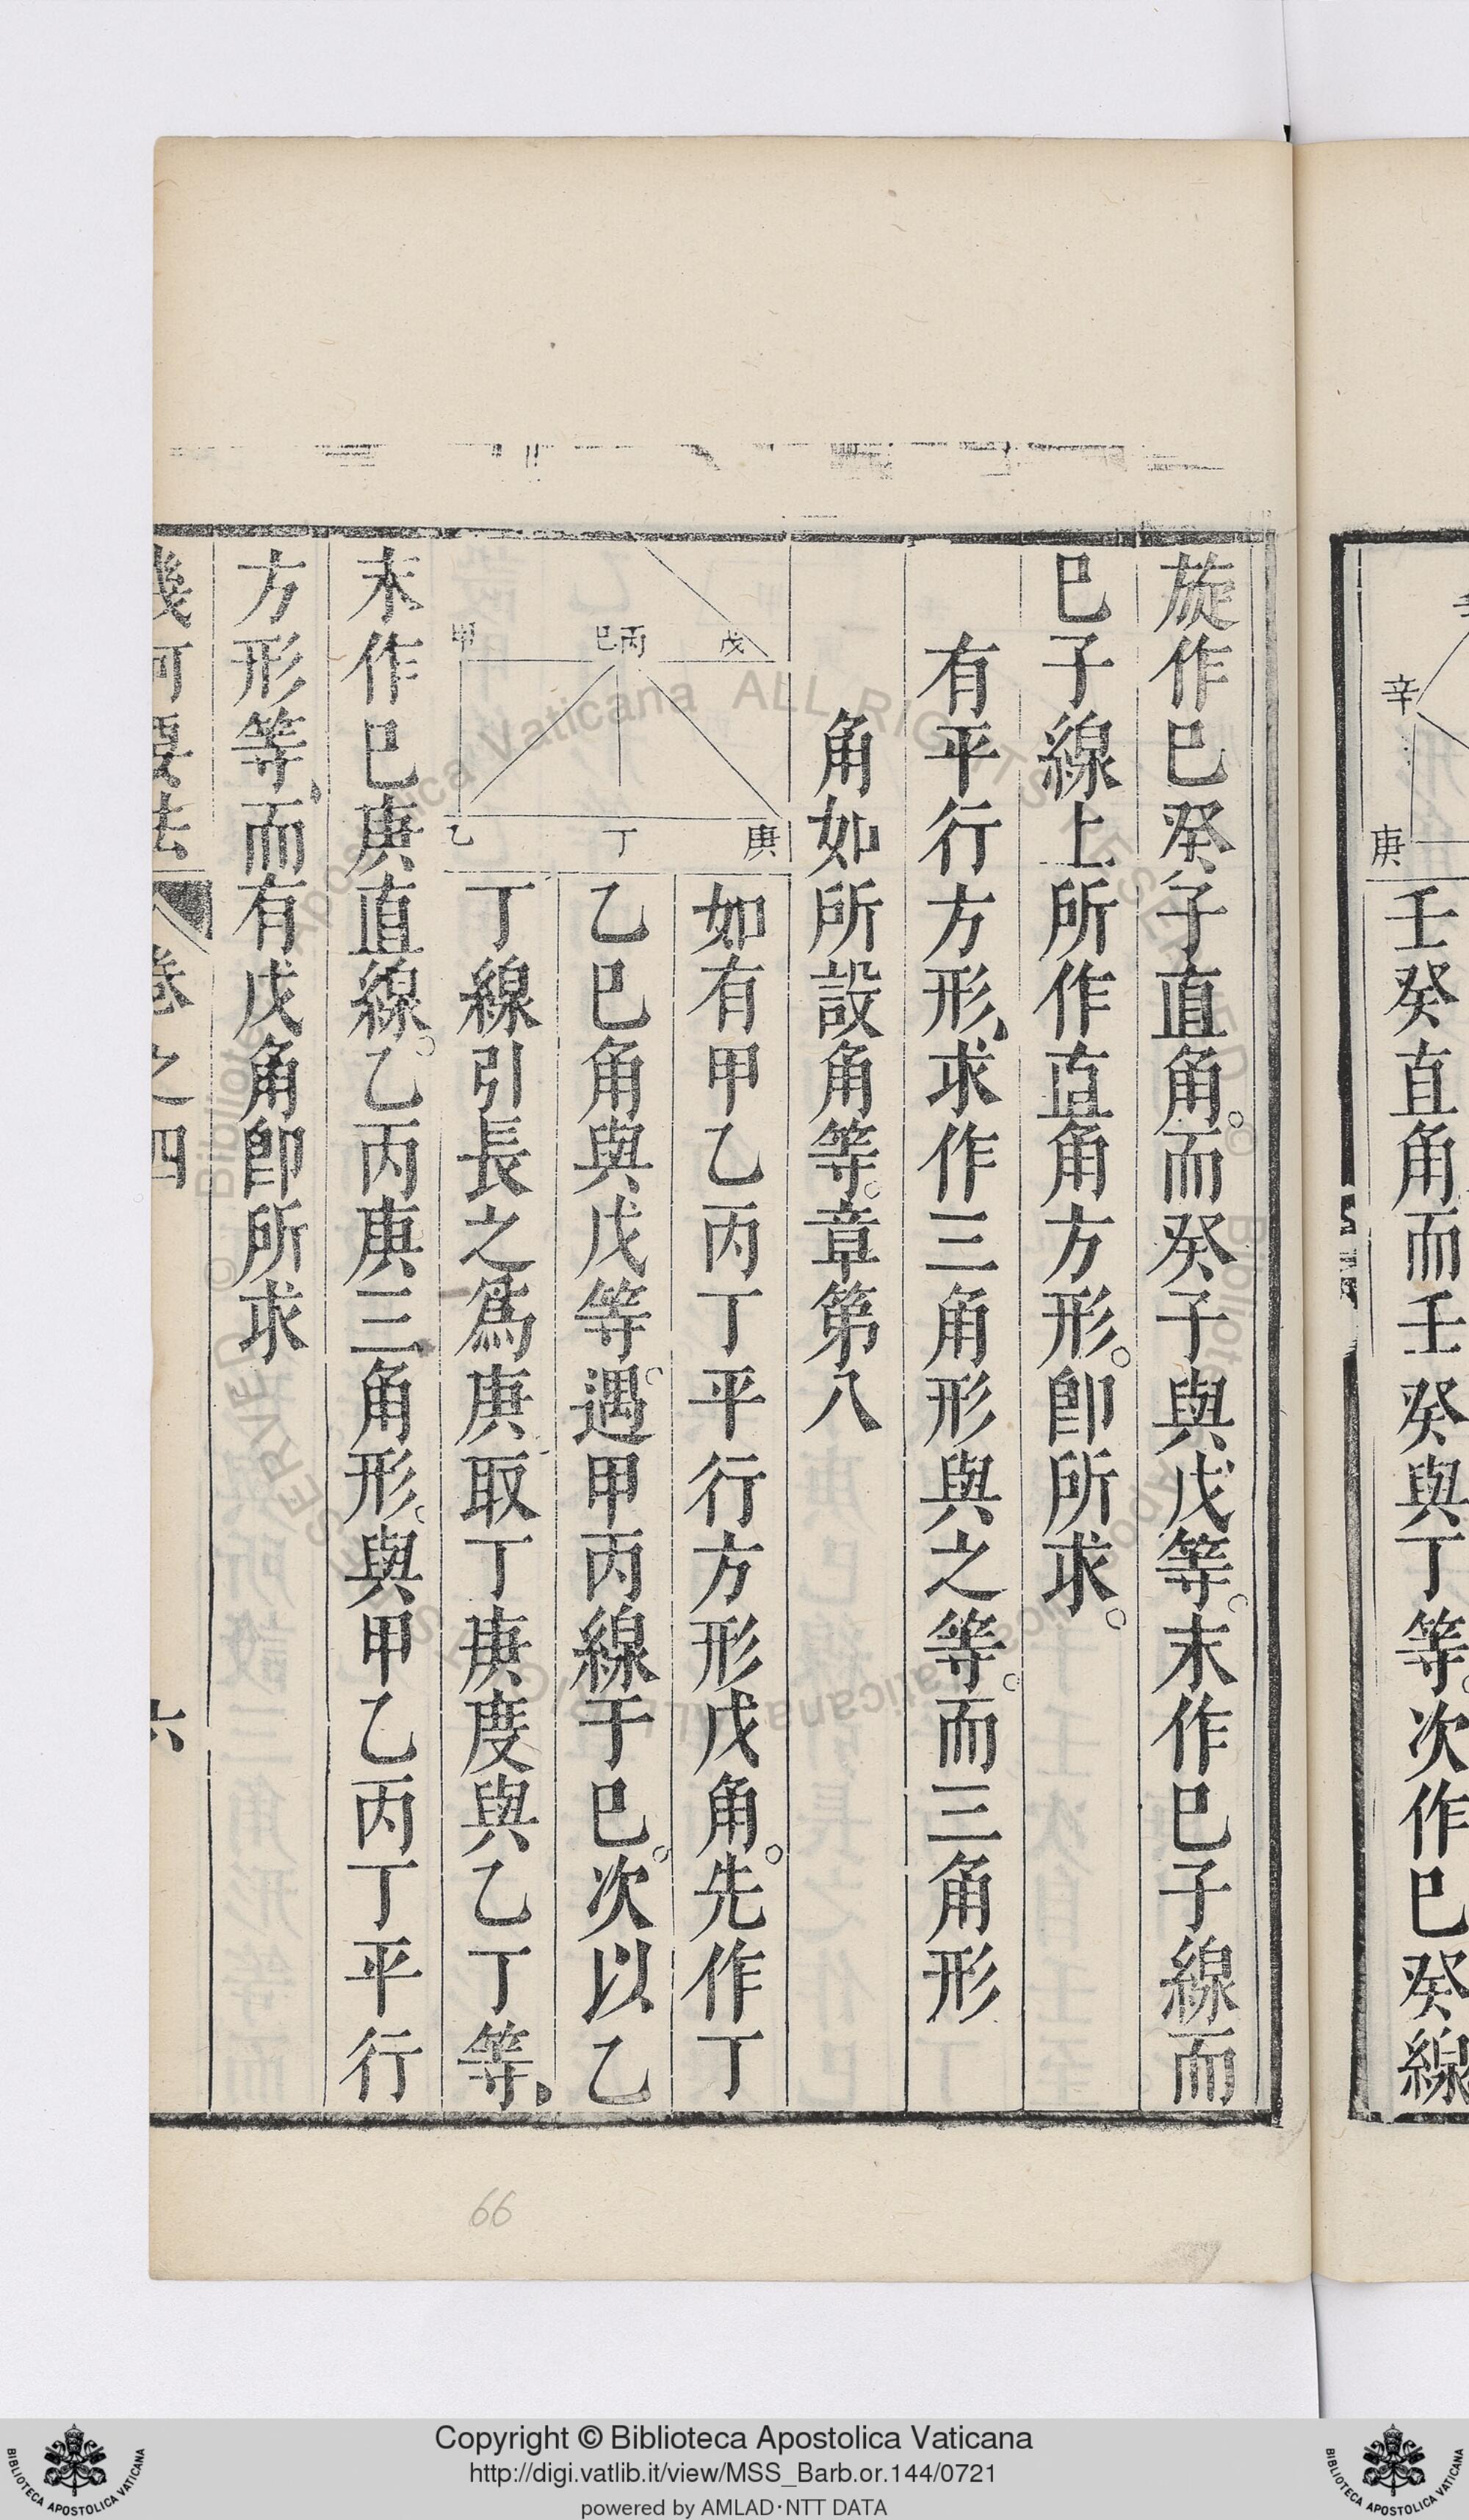 壬癸直角而壬癸與丁等。次作巳癸線
辛
庚
旋作巳癸子直角。而癸子與戊等。末作巳子線而
巳子線上所作直角方形。卽所求。
有平行方形、求作三角形與之等。而三角形
角如所設角等。章第八
甲 巳丙 戊
乙 丁 庚
如有甲乙丙丁平行方形戊角。先作丁
乙巳角與戊等。遇甲丙線于巳。次以乙
丁線引長之爲庚取丁庚度與乙丁等、
末作巳庚直線。乙丙庚三角形。與甲乙丙丁平行
方形等、而有戊角卽所求
幾何要法 卷之四 六
66
Copyright © Biblioteca Apostolica Vaticana
http://digi.vatlib.it/view/MSS_Barb.or.144/0721
powered by AMLAD·NTT DATA
BIBLIOTECA APOSTOLICA VATICANA
BIBLIOTECA APOSTOLICA VATICANA